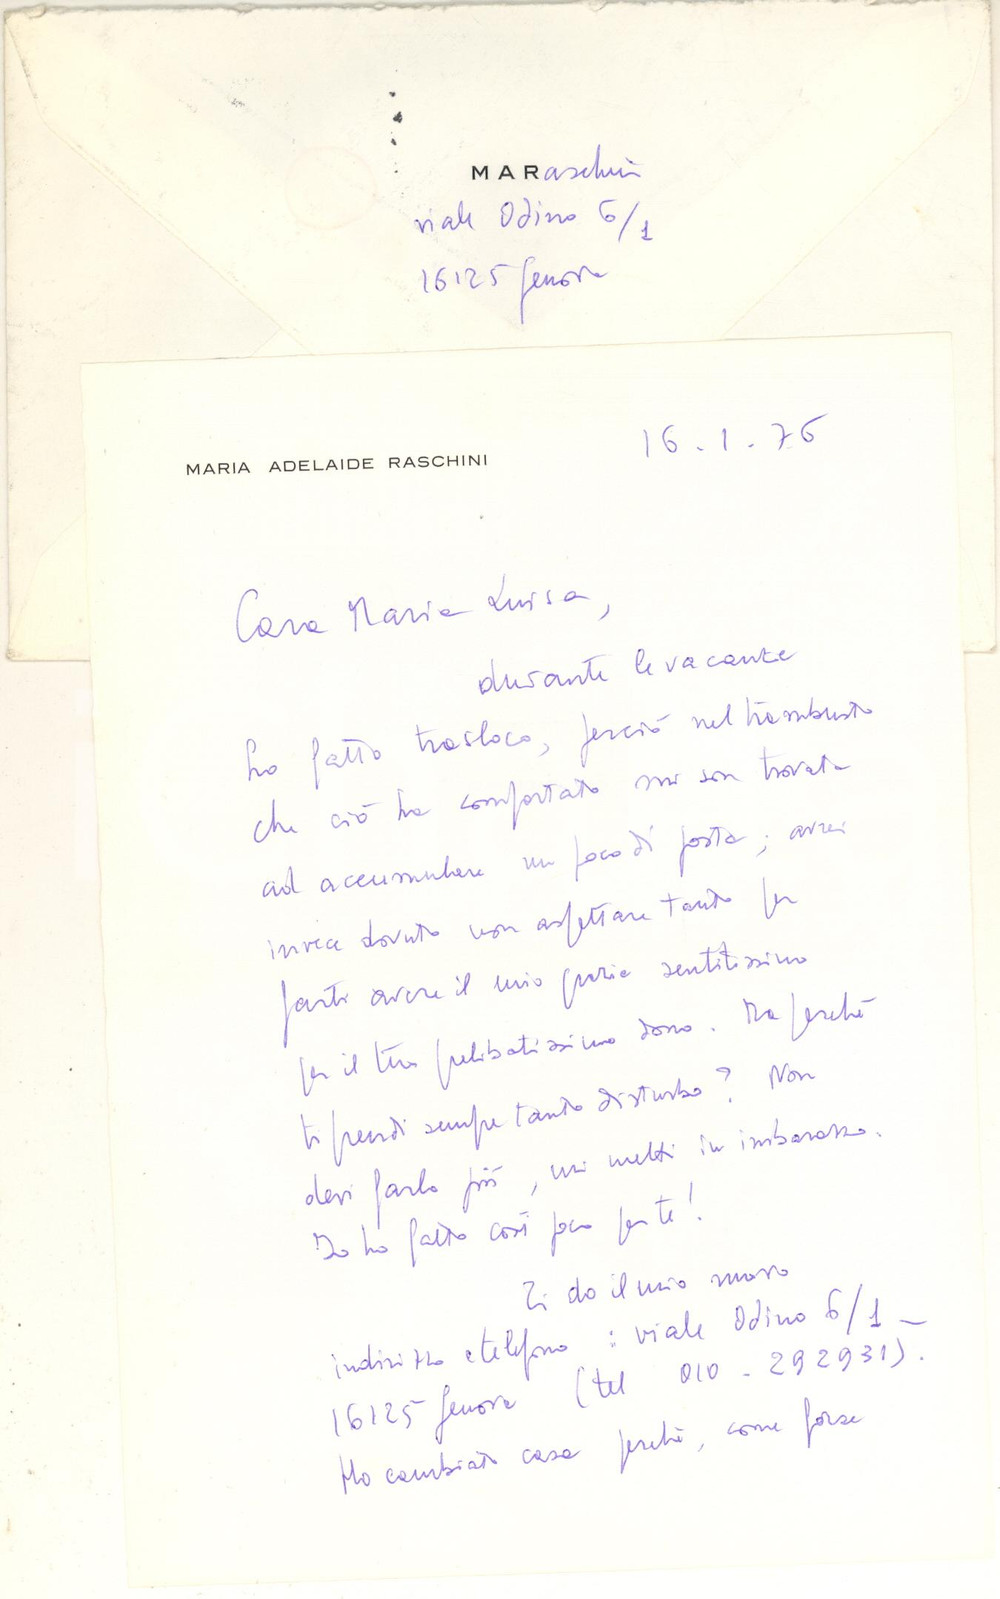 MARaschini
viale Odino 6/1
16125 Genova
MARIA ADELAIDE RASCHINI
16.1.76
Cara Maria Luisa,
durante le vacanze
ho fatto trasloco, perciò nel trambusto
che ciò ha comportato mi son trovata
ad accumulare un poco di posta; avrei
invece dovuto non aspettare tanto per
farti avere il mio grazie sentitissimo
per il tuo prelibatissimo dono. Ma perché
ti prendi sempre tanto disturbo? Non
devi farlo più, mi metti in imbarazzo.
Io ho fatto così poco per te!
Ti do il mio nuovo
indirizzo e telefono: viale Odino 6/1 –
16125 Genova (tel 010 - 292931).
Ho cambiato casa perché, come forse